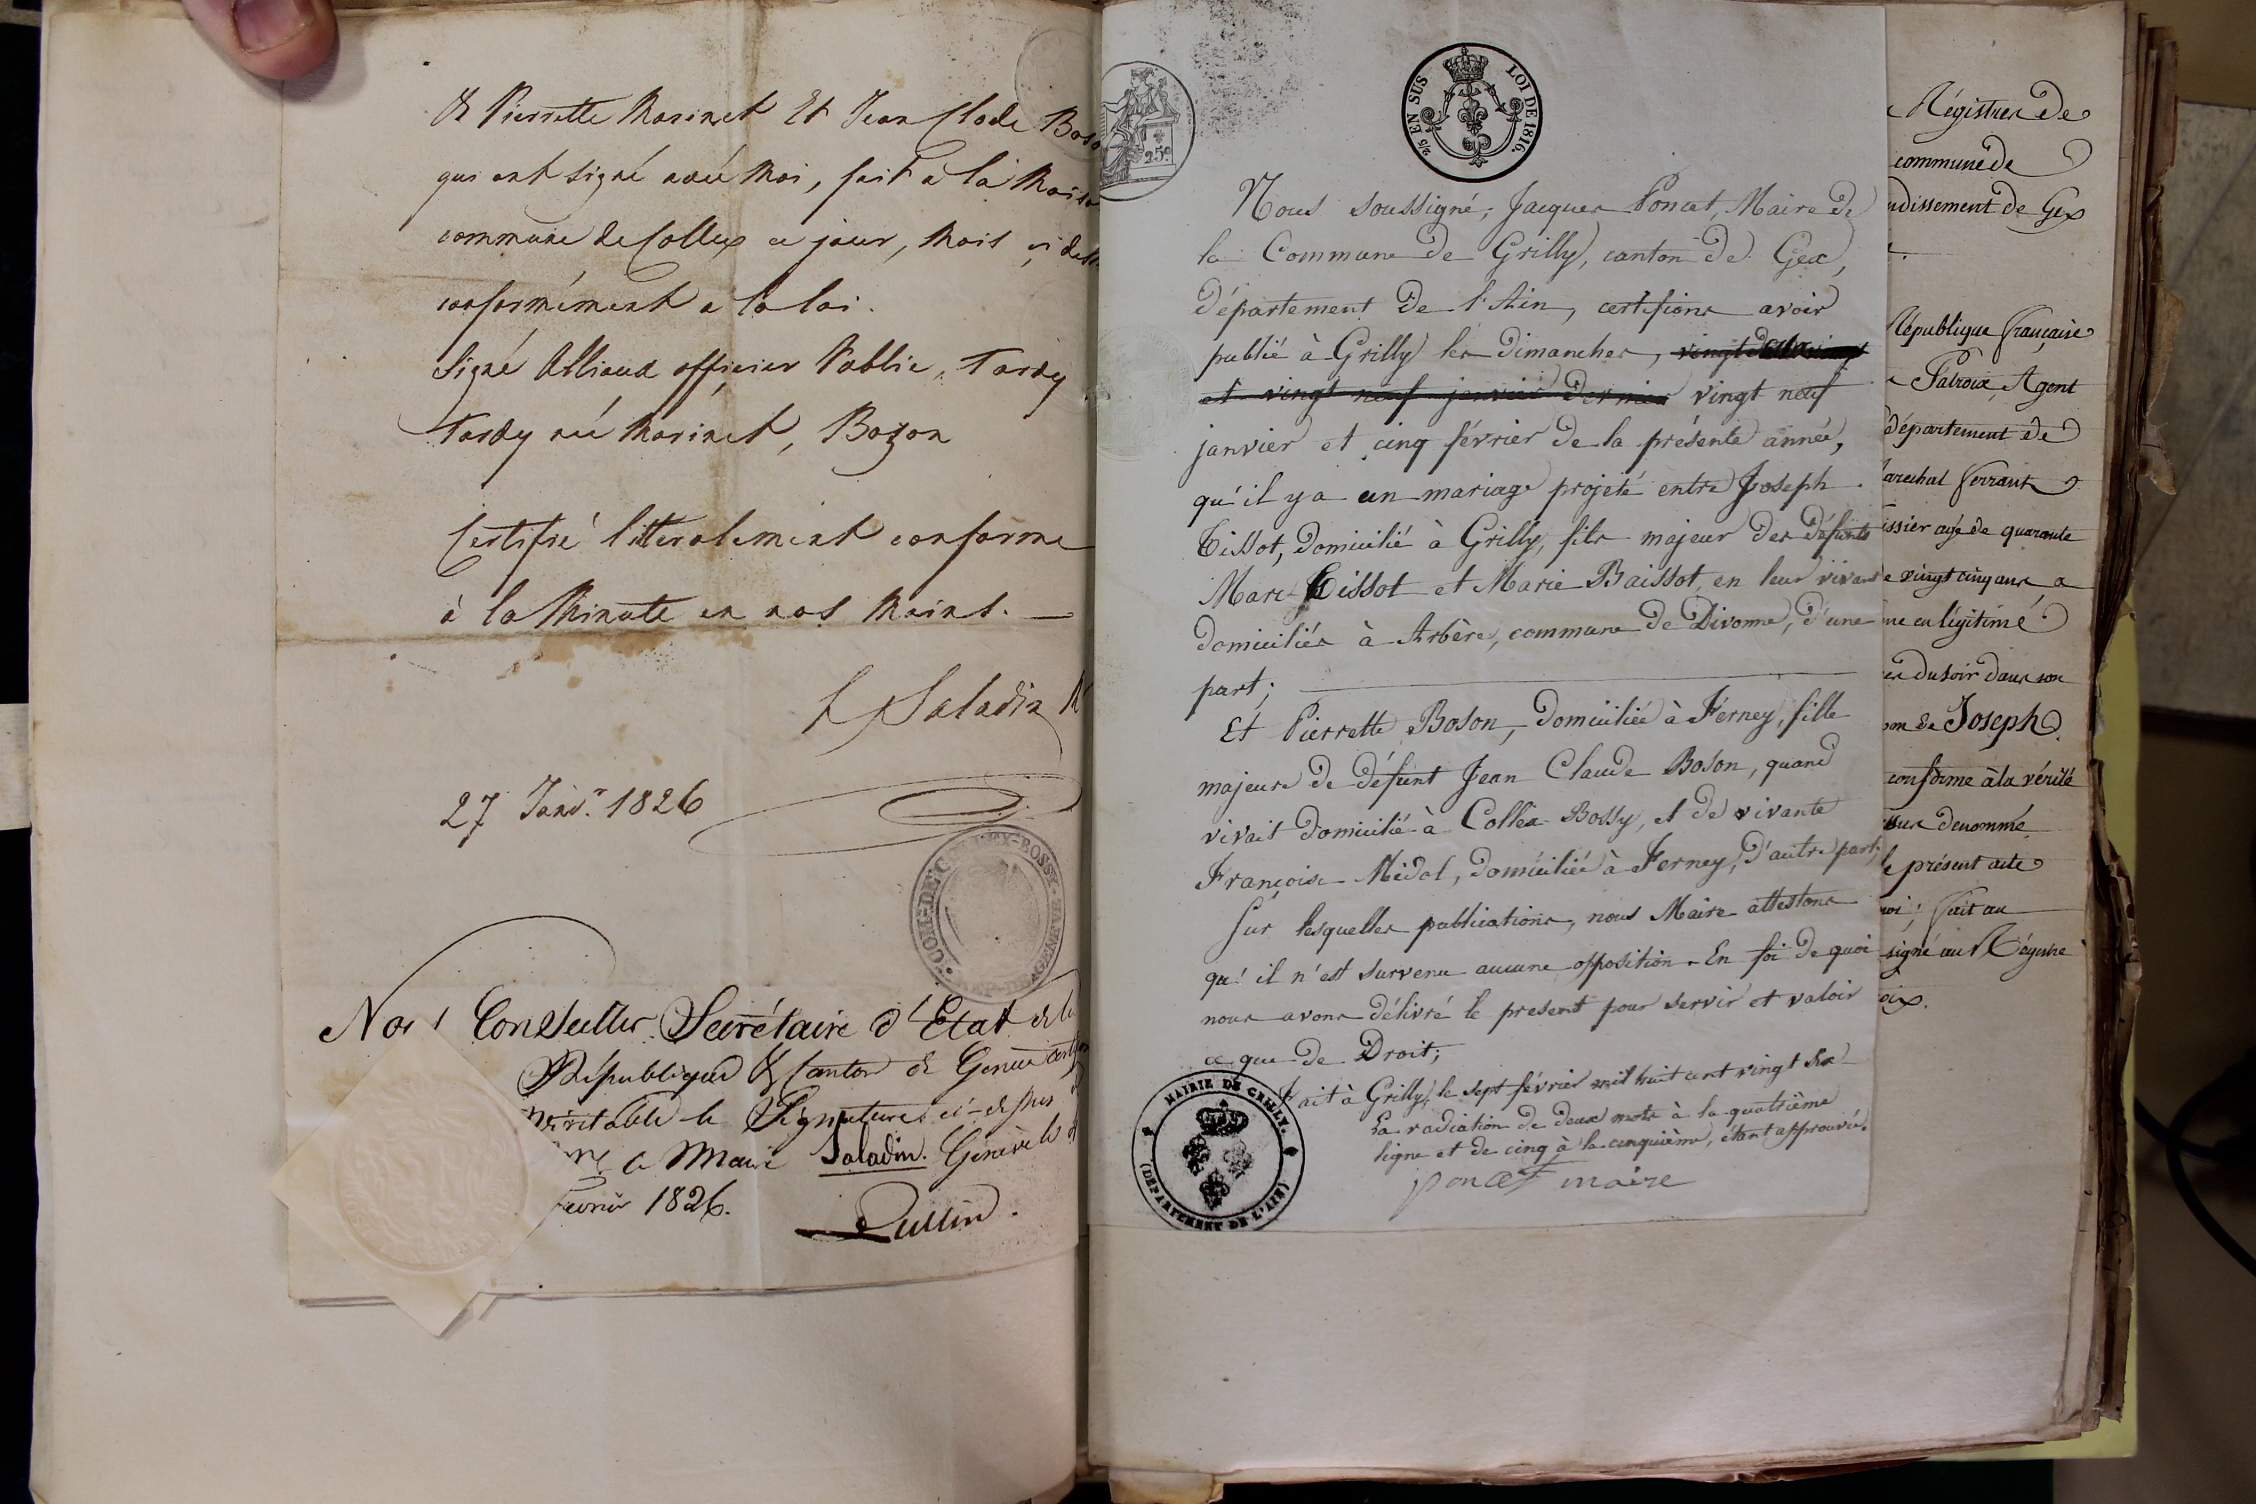 & Pierrette Marinet Et Jean Clode Boso
qui ont signé avec Moi, fait a la Maiso
commune de Collex ce jour, Mois ci dess
conformément a la loi.
Signé Alliaud officier Public, Tardy
Tardy né Marinet, Bozon
Certifié litteralement conforme
à la Minute en nos Mains.
L Saladin M
27 Janv.r 1826
COM-DE-COLLEX-BOSSY
REP-DE-GENEVE
Nous Conseiller Secrétaire d'Etat de la
République & Canton de Genève certifions
véritable la Signature ci-dessus
Maire Saladin. Genève le
février 1826.
Lullin.
25 c
2/5 EN SUS LOI DE 1816.
Nous soussigné, Jacques Poncet, Maire de
la Commune de Grilly, canton de Gex,
département de l'Ain, certifions avoir
publié à Grilly les dimanches, vingt deux
et vingt neuf janvier dernier vingt neuf
janvier et cinq février de la présente année,
qu'il y a un mariage projeté entre Joseph
Tissot, domicilié à Grilly, fils majeur des défunts
Marc Tissot et Marie Baissot, en leur vivant
domiciliés à Arbère, commune de Divonne, d'une
part;
Et Pierrette Boson, domiciliée à Ferney, fille
majeure de défunt Jean Claude Boson, quand
vivait domicilié à Collex Bossy, et de vivante
Françoise Midol, domiciliée à Ferney, d'autre part;
Sur lesquelles publications, nous Maire attestons
qu'il n'est survenu aucune opposition. En foi de quoi
nous avons délivré le present pour servir et valoir
ce que de Droit;
Fait à Grilly, le sept février mil huit cent vingt six
La radiation de deux mots à la quatrième
ligne et de cinq à la cinquième, étant approuvée.
poncet maire
MAIRIE DE GRILLY.
(DEPARTEMENT DE L'AIN)
Régistres de
commune de
ndissement de Gex
République française
Patroix, Agent
département de
arechal ferrant
issier agé de quarante
e vingt cinq ans, a
me en légitime
es du soir dans son
nom de Joseph
conforme à la vérité
ssus denommé
le présent acte
moi; fait au
signé au Régistre
oix.